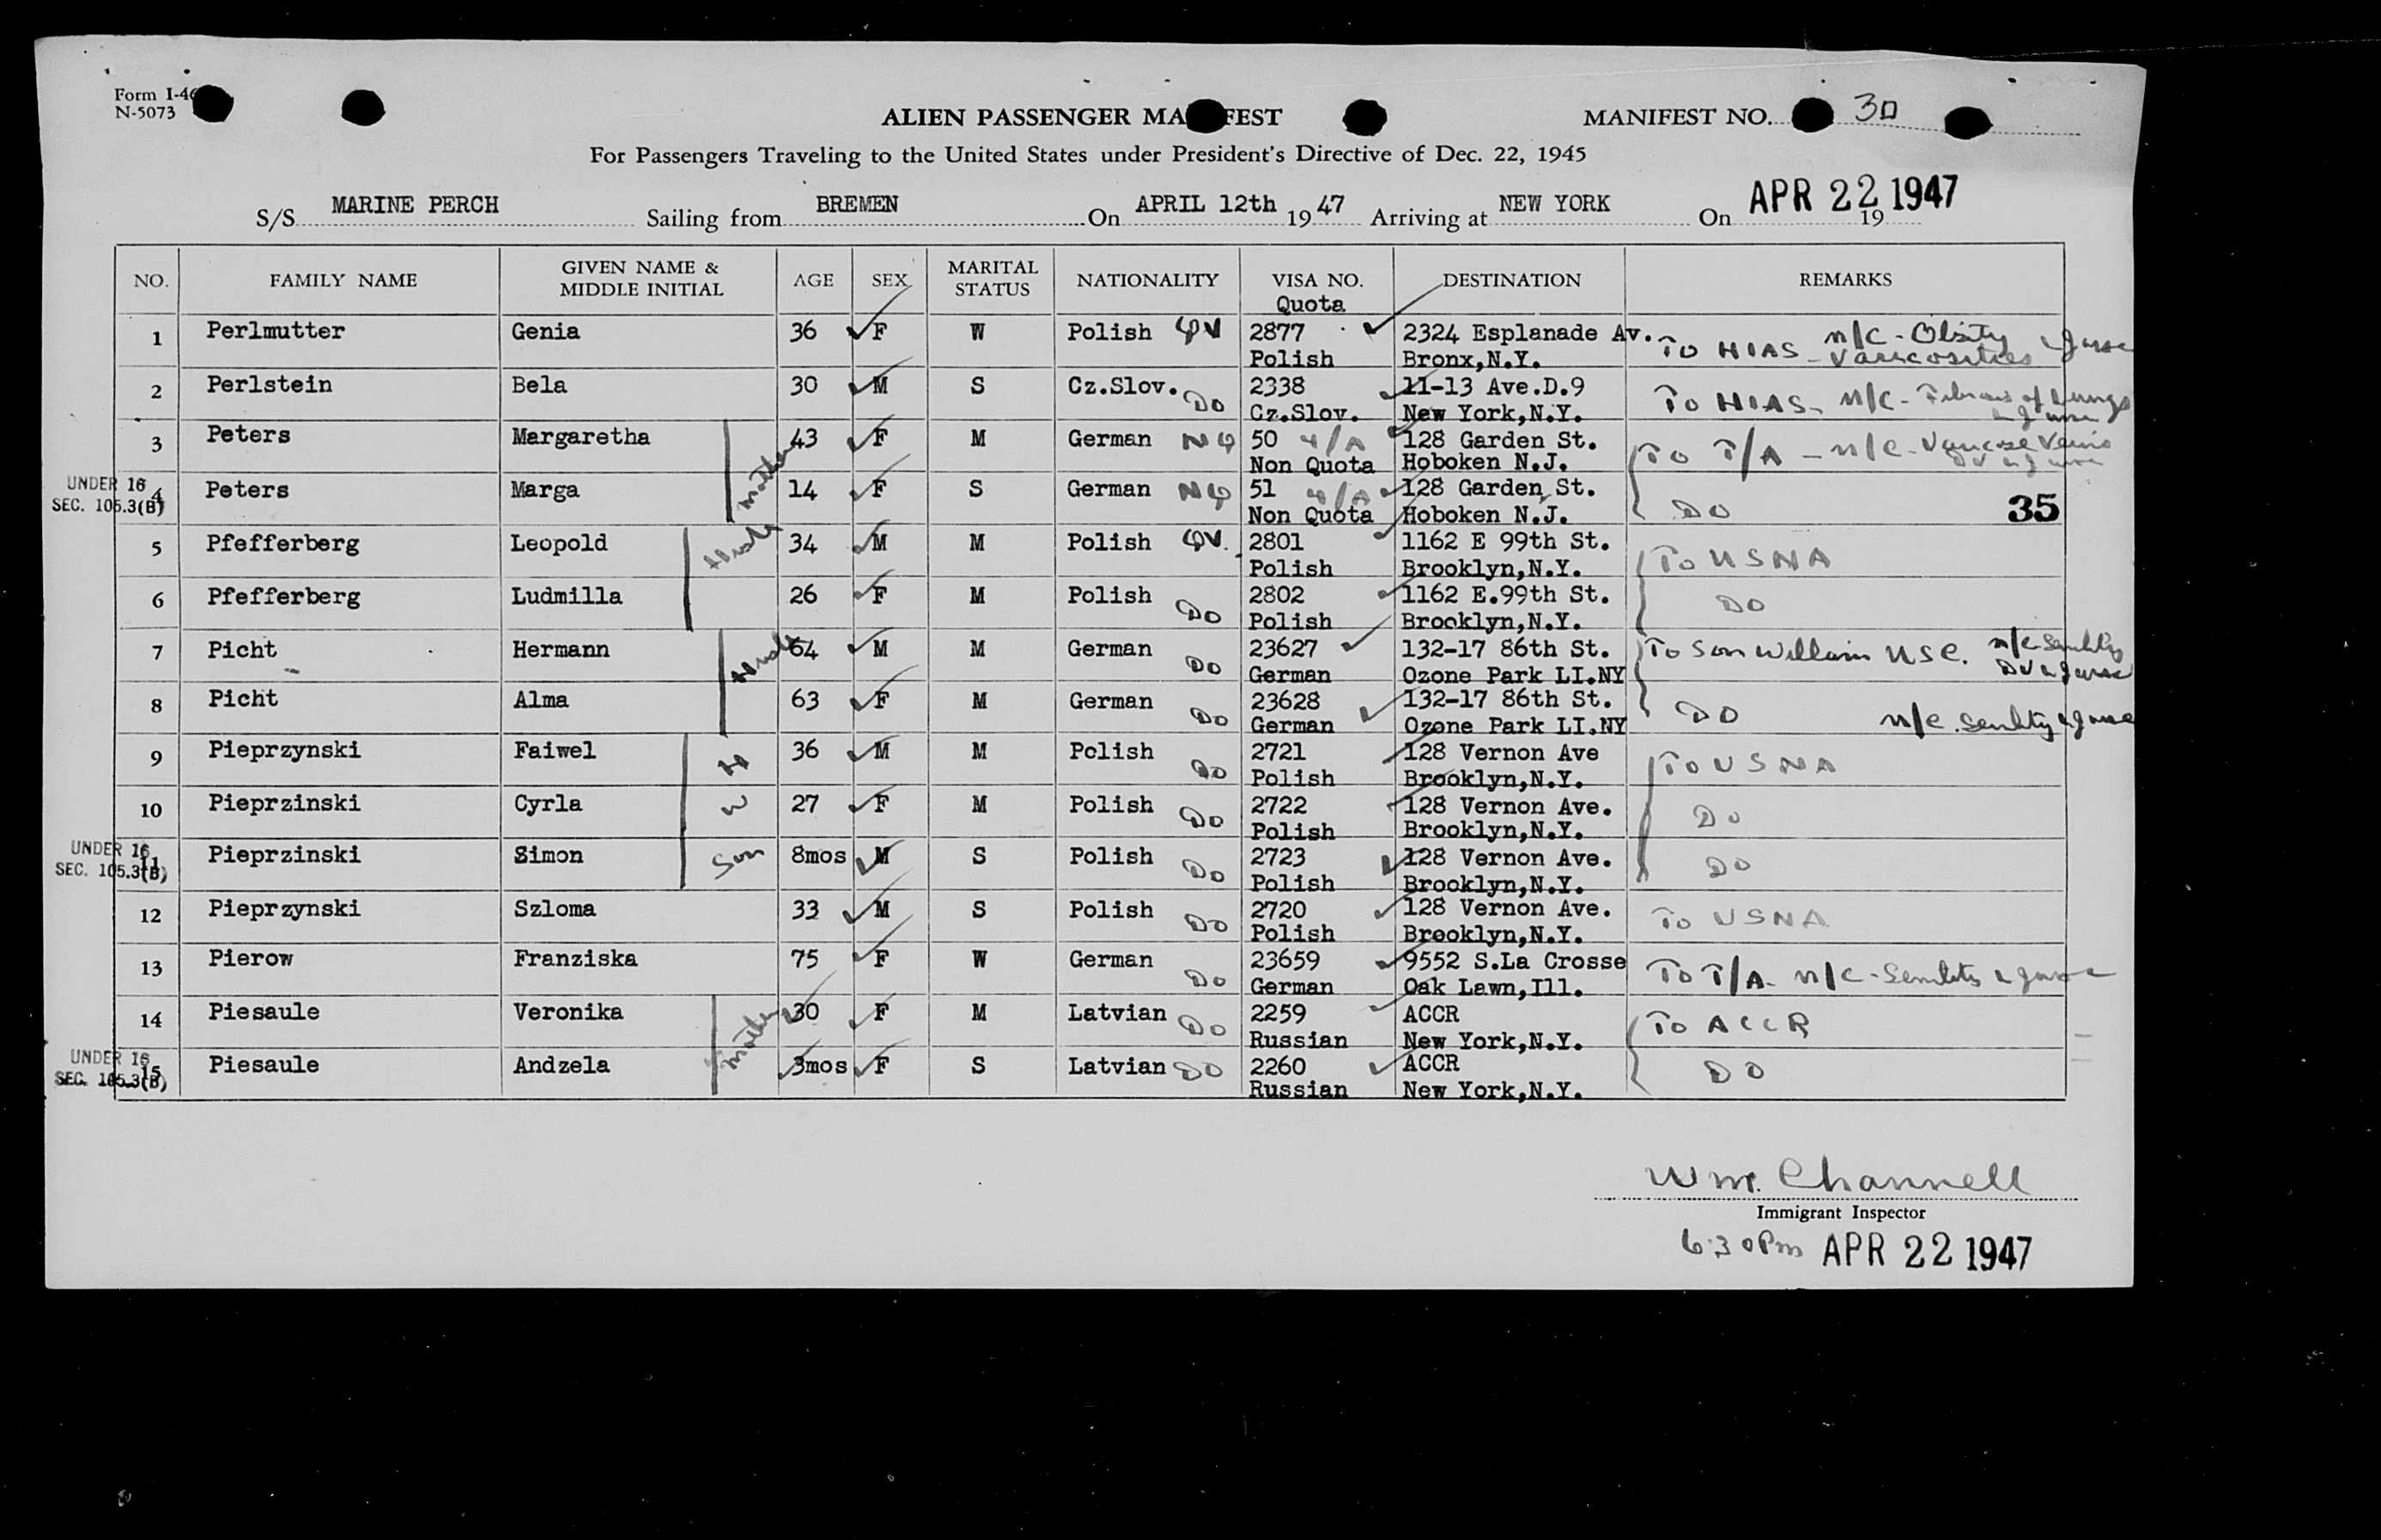 Form I-4
N-5073
ALIEN PASSENGER MA FEST
MANIFEST NO. 30
For Passengers Traveling to the United States under President's Directive of Dec. 22, 1945
S/S MARINE PERCH Sailing from BREMEN On APRIL 12th 19 47 Arriving at NEW YORK On APR 22 1947 19
NO. FAMILY NAME GIVEN NAME & MIDDLE INITIAL AGE SEX MARITAL STATUS NATIONALITY VISA NO. Quota DESTINATION REMARKS
1 Perlmutter Genia 36 F W Polish QV 2877 2324 Esplanade Av. To HIAS n/c - Obsity
Polish Bronx,N.Y. Varicosities
2 Perlstein Bela 30 M S Cz.Slov. Do 2338 11-13 Ave.D.9 To HIAS - n/c - Fibrosis of Lungs
Cz.Slov. New York,N.Y.
3 Peters Margaretha Mother 43 F M German NQ 50 4/A 128 Garden St. To T/A - n/c - Varicose Veins
Non Quota Hoboken N.J.
UNDER 16 SEC. 105.3(B) 4 Peters Marga 14 F S German NQ 51 4/A 128 Garden St. Do 35
Non Quota Hoboken N.J.
5 Pfefferberg Leopold 34 M M Polish QV. 2801 1162 E 99th St. To USNA
Polish Brooklyn,N.Y.
6 Pfefferberg Ludmilla 26 F M Polish Do 2802 1162 E.99th St. Do
Polish Brooklyn,N.Y.
7 Picht Hermann 64 M M German Do 23627 132-17 86th St. To Son William USC. n/c Senility
German Ozone Park LI.NY
8 Picht Alma 63 F M German Do 23628 132-17 86th St. Do n/c. Senility
German Ozone Park LI.NY
9 Pieprzynski Faiwel H 36 M M Polish Do 2721 128 Vernon Ave To USNA
Polish Brooklyn,N.Y.
10 Pieprzinski Cyrla W 27 F M Polish Do 2722 128 Vernon Ave. Do
Polish Brooklyn,N.Y.
UNDER 16 SEC. 105.3(B) 11 Pieprzinski Simon Son 8mos M S Polish Do 2723 128 Vernon Ave. Do
Polish Brooklyn,N.Y.
12 Pieprzynski Szloma 33 M S Polish Do 2720 128 Vernon Ave. To USNA
Polish Brooklyn,N.Y.
13 Pierow Franziska 75 F W German Do 23659 9552 S.La Crosse To T/A - n/c - Senility
German Oak Lawn,Ill.
14 Piesaule Veronika Mother 30 F M Latvian Do 2259 ACCR To ACCR
Russian New York,N.Y.
UNDER 16 SEC. 105.3(B) 15 Piesaule Andzela 3mos F S Latvian Do 2260 ACCR Do
Russian New York,N.Y.
Wm. Channell
Immigrant Inspector
6:30 Pm APR 22 1947